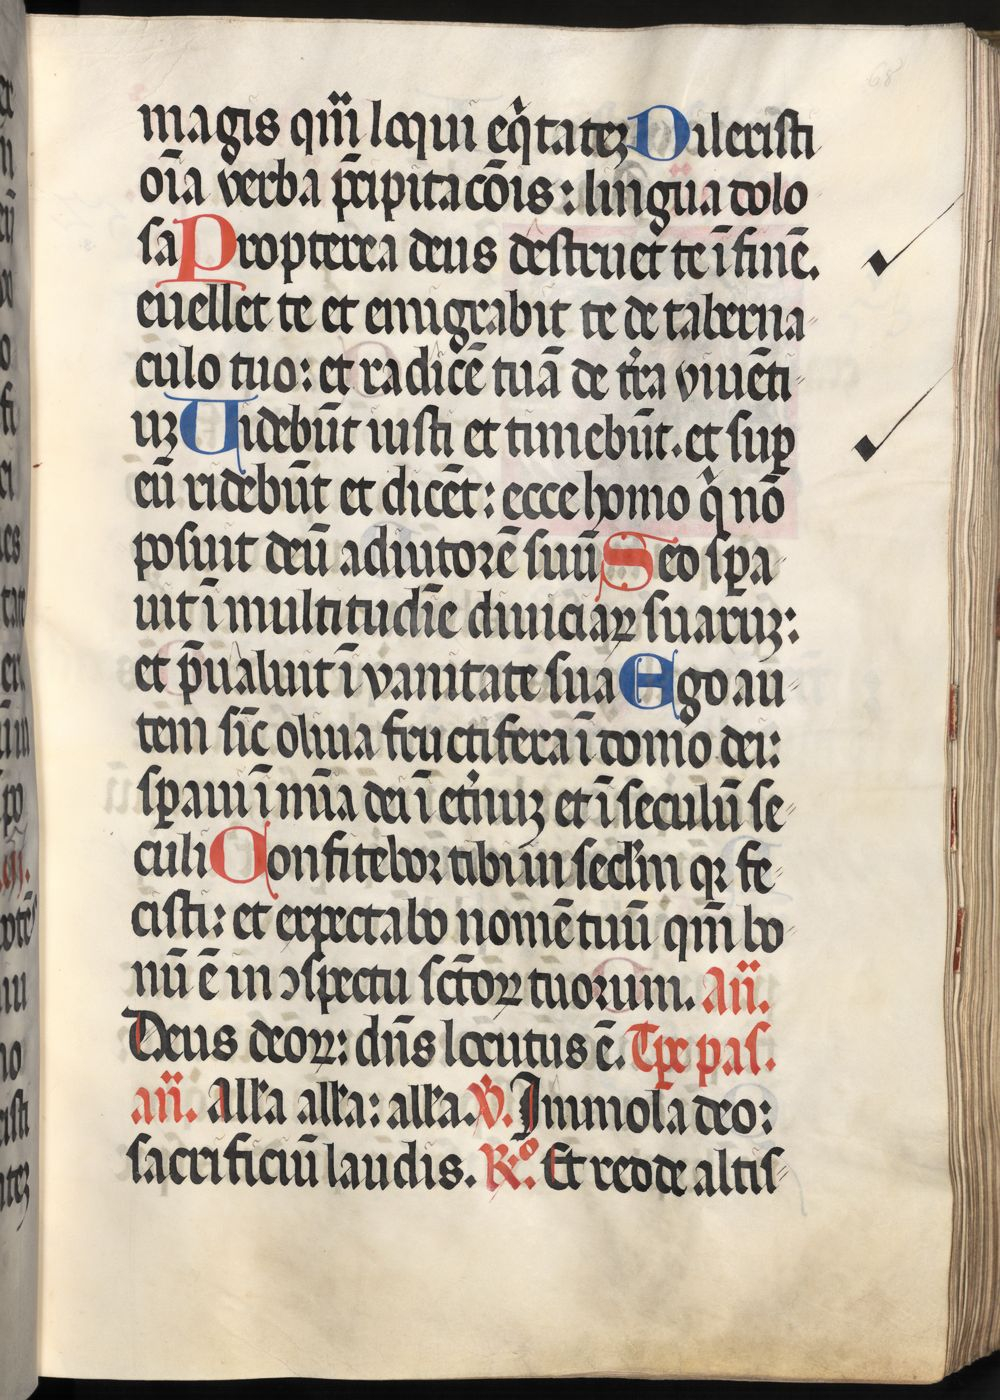 magis qm̄ loqui eq̄tatēꝫ Dilexisti
oīa verba p̄cipitacōis: lingua dolo
sa Propterea deus destruet te ī finē.
euellet te et emigrabit te de taberna
culo tuo: et radicē tuā de tr̄a viuēti
uꝫ Uidebūt iusti et timebūt. et suꝑ
eū ridebūt et dicēt: ecce homo q̄ nō
posuit deū adiutorē suū Sed sꝑa
uit ī multitudīe diuiciaꝝ suaruꝫ:
et p̄ualuit ī vanitate sua Ego au
tem sic̄ oliua fructifera ī domo dei:
sꝑaui ī mīa dei ī et̄nuꝫ et ī seculū se
culi Confitebor tibi in secl̄m qꝛ fe
cisti: et expectabo nomē tuū qm̄ bo
nū ē in ↄspectu sct̄oꝝ tuorum. An̄.
Deus deoꝝ: dn̄s locutus ē. Tꝑe pas.
an̄. Alla alla: alla. V̄. Immola deo:
sacrificiū laudis. ℞º. Et redde altis
68